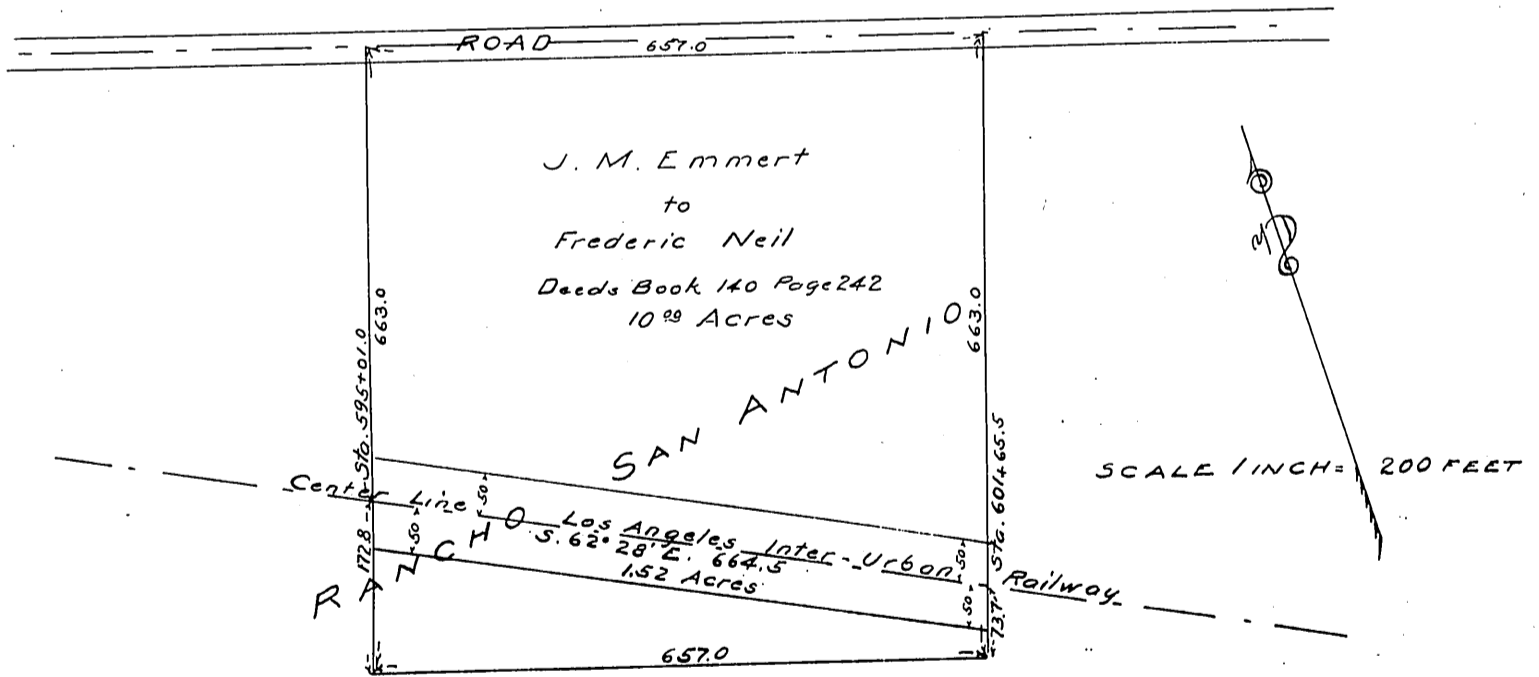 ROAD 657.0
J. M. Emmert
to
Frederic Neil
Deeds Book 140 Page 242
10 99 Acres
663.0
663.0
Sta. 595+01.0
Sta. 601+65.5
RANCHO SAN ANTONIO
SCALE 1 INCH = 200 FEET
Center Line Los Angeles Inter-Urban Railway
S. 62° 28' E. 664.5
1.52 Acres
50
50
50
50
172.8
73.7
657.0